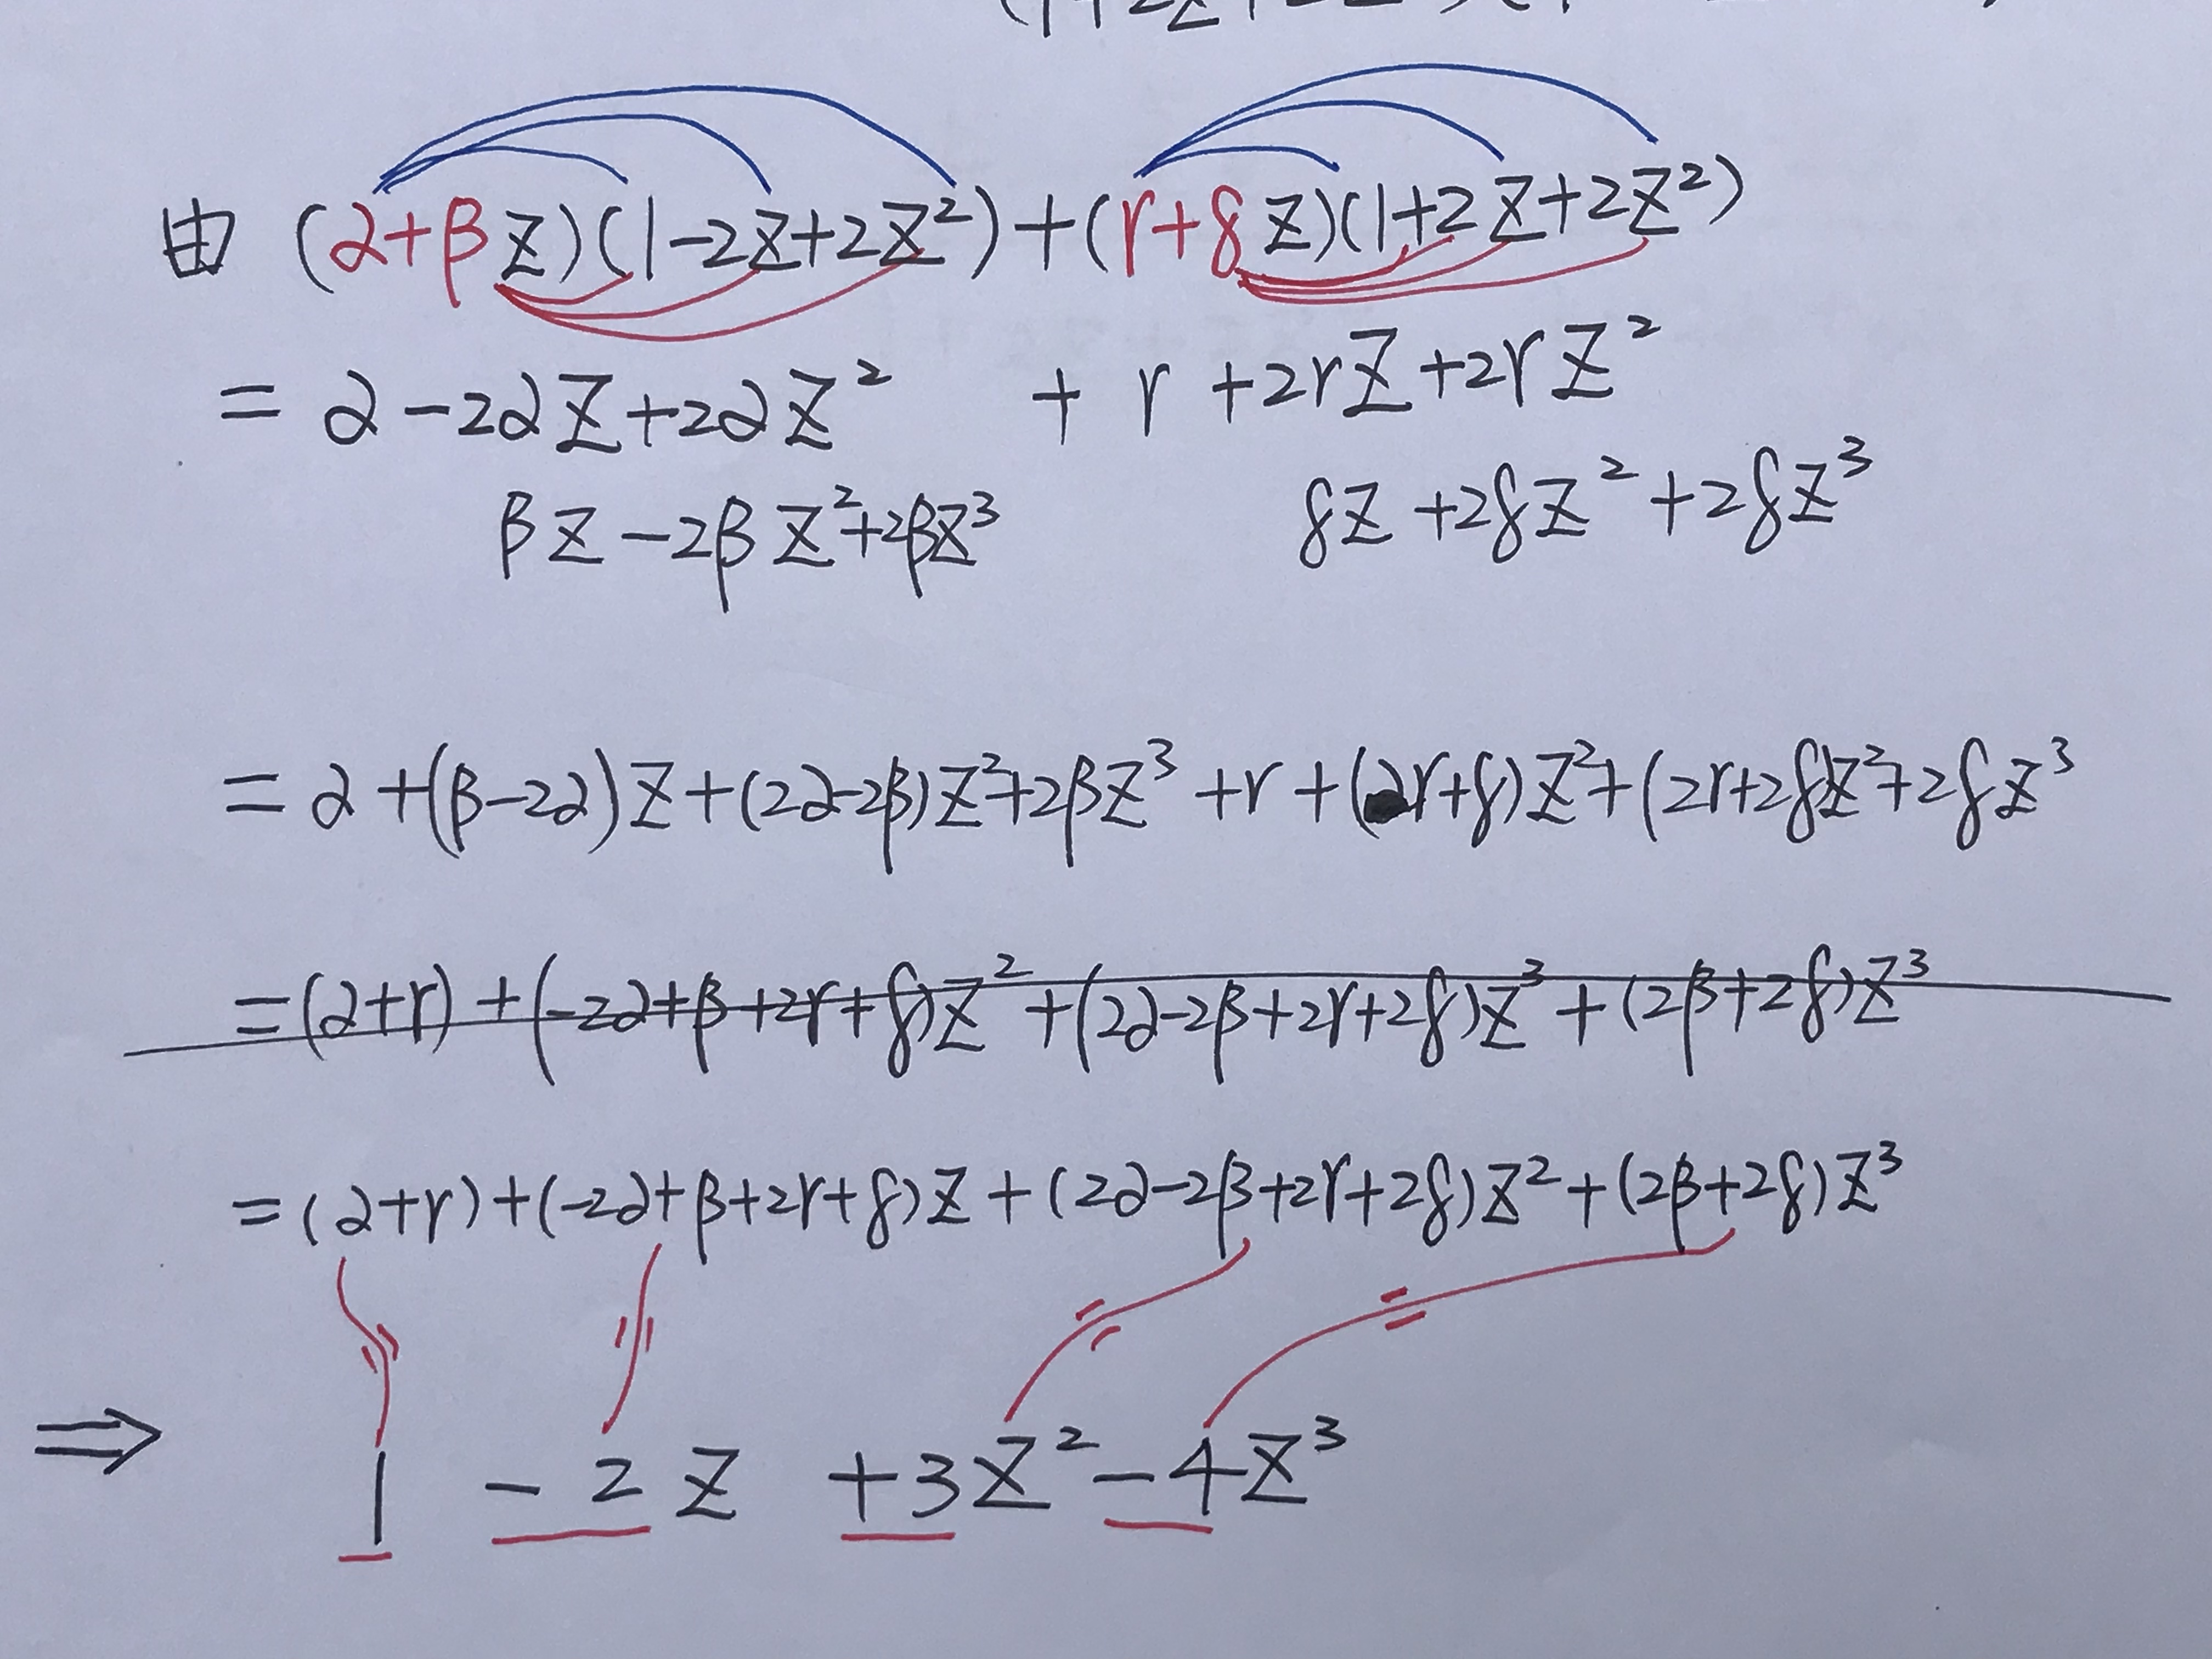 由 (α+βz)(1-2z+2z²)+(r+δz)(1+2z+2z²)
= α-2αz+2αz² + r +2rz+2rz²
βz-2βz²+2βz³ δz+2δz²+2δz³
= α+(β-2α)z+(2α-2β)z²+2βz³+r+(2r+δ)z²+(2r+2δ)z²+2δz³
=(α+r)+(-2α+β+2r+δ)z²+(2α-2β+2r+2δ)z³+(2β+2δ)z³
=(α+r)+(-2α+β+2r+δ)z+(2α-2β+2r+2δ)z²+(2β+2δ)z³
⇒ 1 -2z +3z²-4z³